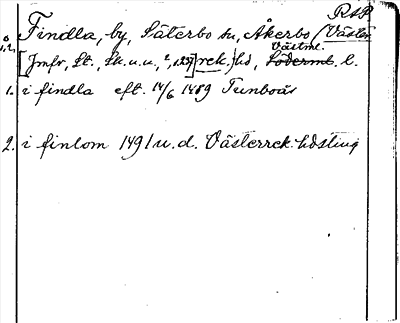 RAP
Findla, by, Säterbo sn, Åkerbo (Väster
[Jmfr, St., Sk. u. u., 2, 127] rek.) hd, Västml. Söderml. l.
1. i findla eft. 14/6 1489 Tunboås
2. i finlom 1491 u. d. Västerrek. hdsting